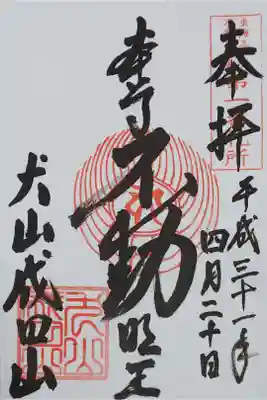 奉拝
平成三十一年
四月二十日
本尊不動明王
犬山成田山